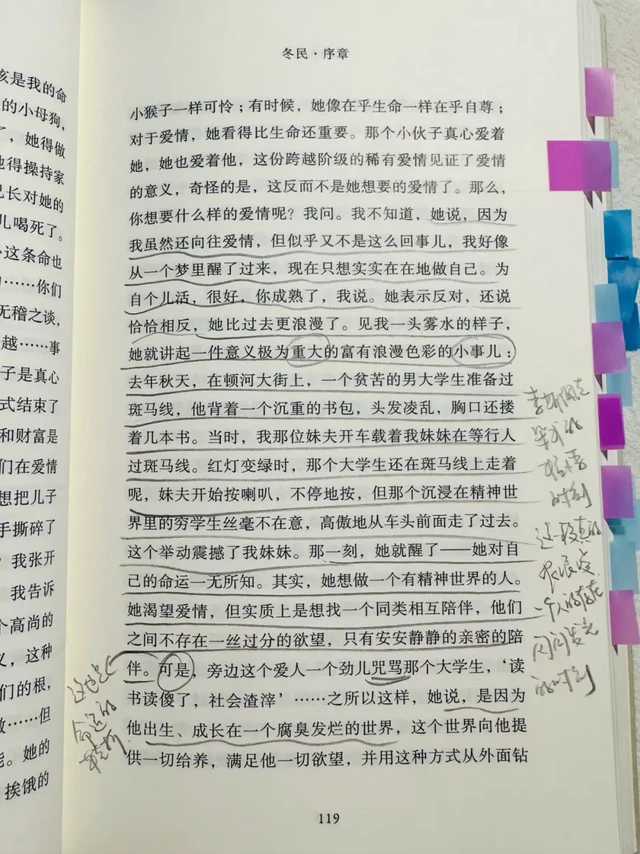 该是我的命
的小母狗,
了,她得做
也得操持家
兄长对她的
儿喝死了。
小这条命也
……你们
无稽之谈,
越……事
子是真心
式结束了
和财富是
们在爱情
想把儿子
手撕碎了
我张开
我告诉
个高尚的
义,这种
们的根,
做……但
能。她的
挨饿的
冬民·序章
小猴子一样可怜;有时候,她像在乎生命一样在乎自尊;
对于爱情,她看得比生命还重要。那个小伙子真心爱着
她,她也爱着他,这份跨越阶级的稀有爱情见证了爱情
的意义,奇怪的是,这反而不是她想要的爱情了。那么,
你想要什么样的爱情呢?我问。我不知道,她说,因为
我虽然还向往爱情,但似乎又不是这么回事儿,我好像
从一个梦里醒了过来,现在只想实实在在地做自己。为
自个儿活,很好,你成熟了,我说。她表示反对,还说
恰恰相反,她比过去更浪漫了。见我一头雾水的样子,
她就讲起一件意义极为重大的富有浪漫色彩的小事儿:
去年秋天,在顿河大街上,一个贫苦的男大学生准备过
斑马线,他背着一个沉重的书包,头发凌乱,胸口还搂
着几本书。当时,我那位妹夫开车载着我妹妹在等行人
过斑马线。红灯变绿时,那个大学生还在斑马线上走着
呢,妹夫开始按喇叭,不停地按,但那个沉浸在精神世
界里的穷学生丝毫不在意,高傲地从车头前面走了过去。
这个举动震撼了我妹妹。那一刻,她就醒了——她对自
己的命运一无所知。其实,她想做一个有精神世界的人。
她渴望爱情,但实质上是想找一个同类相互陪伴,他们
之间不存在一丝过分的欲望,只有安安静静的亲密的陪
伴。可是,旁边这个爱人一个劲儿咒骂那个大学生,‘读
书读傻了,社会渣滓’……之所以这样,她说,是因为
他出生、成长在一个腐臭发烂的世界,这个世界向他提
供一切给养,满足他一切欲望,并用这种方式从外面钻
时刻
一个人的存在
闪闪发光
的时刻
这也是
命运的
119